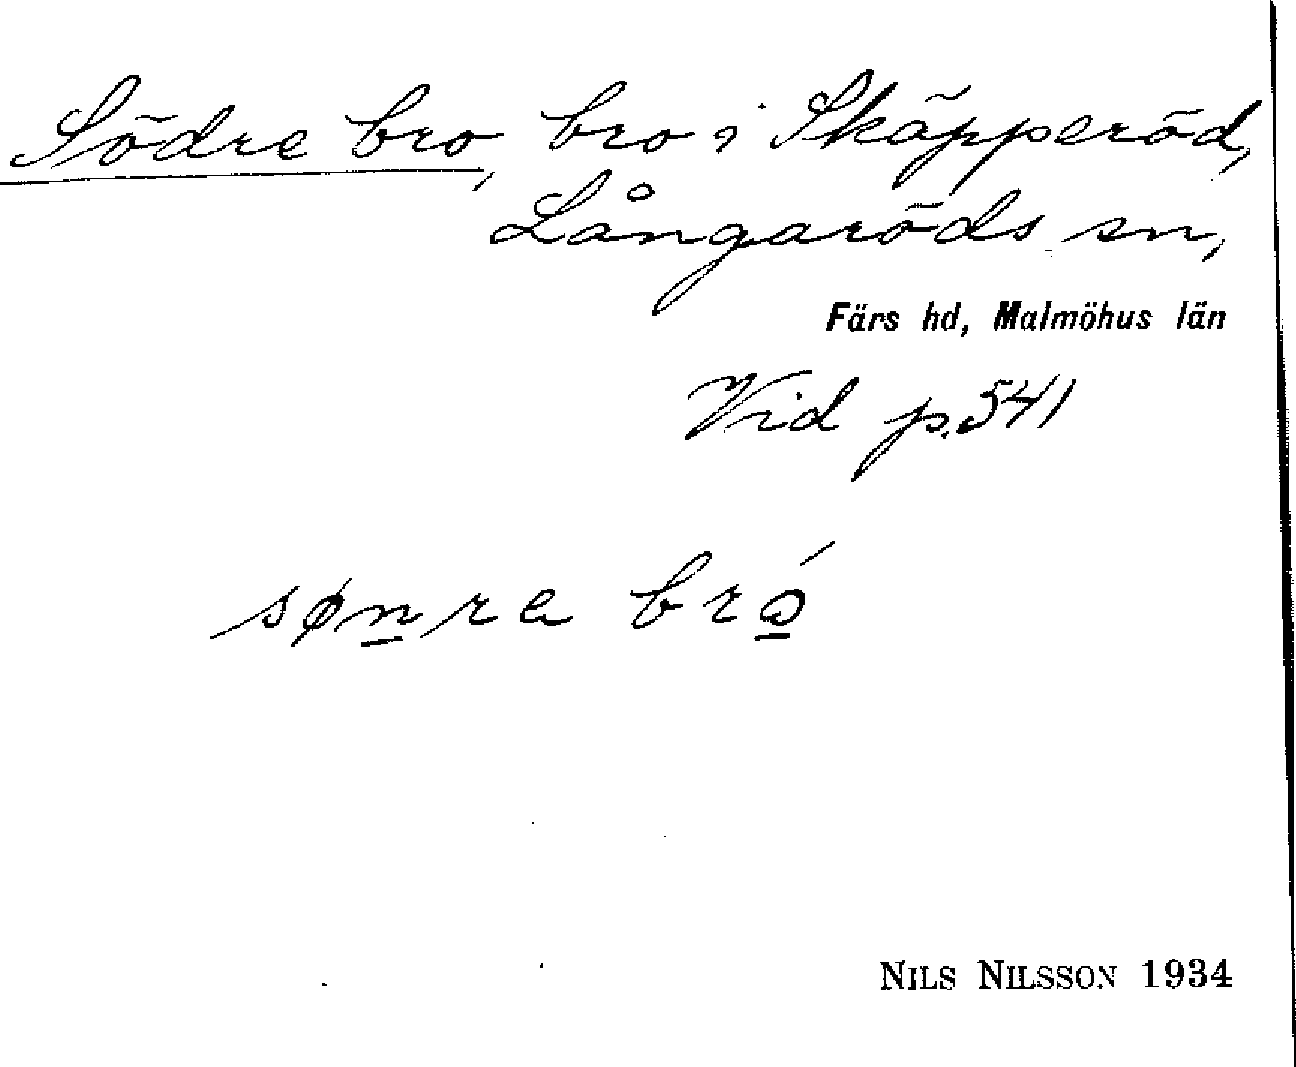 Södre bro, bro i Skäpperöd,
Långaröds sn,
Färs hd, Malmöhus län
Vid p. 541
søn̲re bró̲
NILS NILSSON 1934